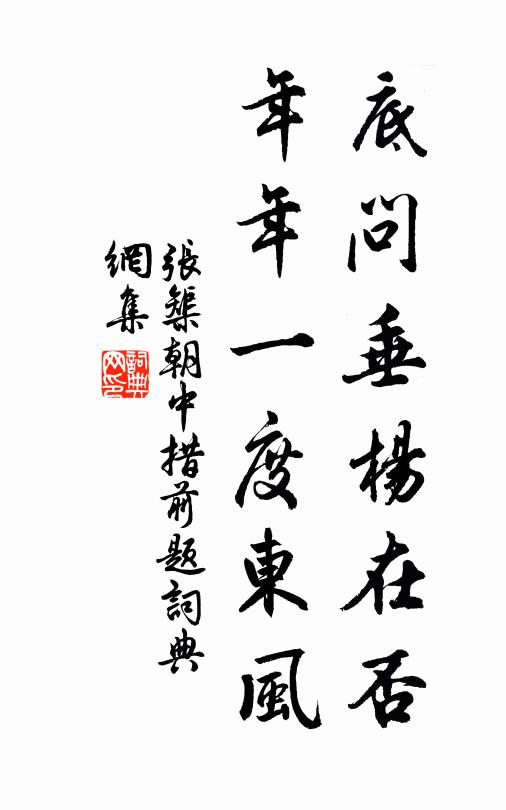 底問垂楊在否
年年一度東風
張榘朝中措前題詞典
網集
詞典
网印